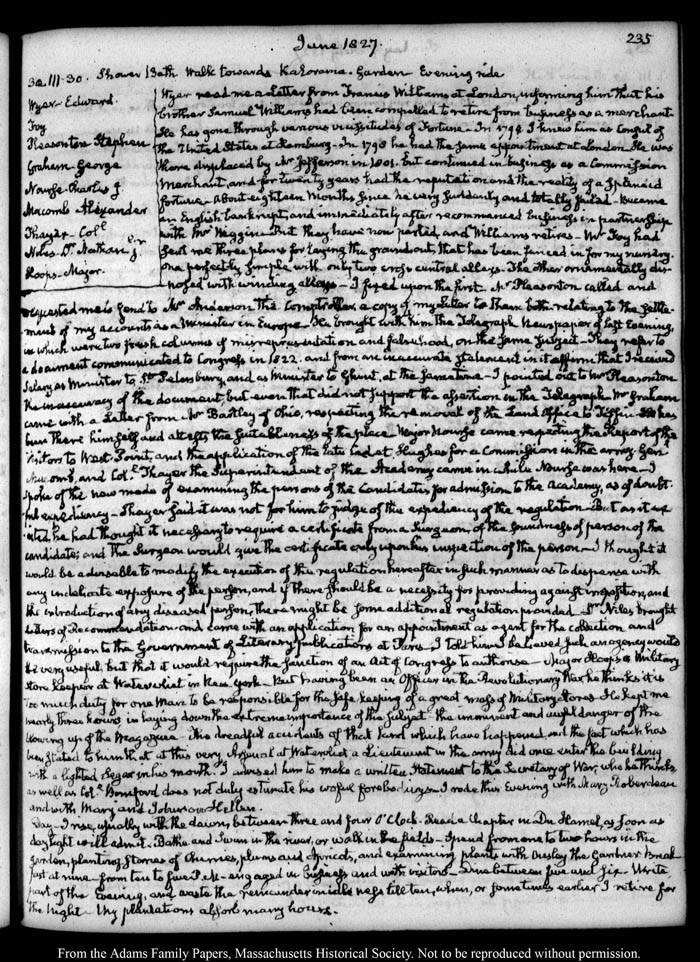 June 1827.
235
30. III-30. Shower Bath Walk towards Kalorama. Garden Evening ride
Wyer- Edward.
Foy
Pleasonton Stephen
Graham- George
Nourse- Charles J
Macomb Alexander
Thayer- Colᵉ
Niles. Dʳ Nathanˡ Jʳ
Hoops- Major.
Wyer read me a Letter from Francis Williams at London, informing him that his
brother Samuel Williams had been compelled to retire from business as a merchant.
He has gone through various vicissitudes of Fortune- In 1796 I knew him as Consul of
the United States at Hamburg- In 1798 he had the same appointment at London. He was
there displaced by Mr Jefferson in 1801. but continued in business as a Commission
Merchant, and for twenty years had the reputation and the reality of a splendid
fortune- About eighteen Months since he very suddenly and totally failed- became
an English bankrupt, and immediately after recommenced business in partnership
with Mr Wiggin- But they have now parted, and Williams retires- Mr Foy had
sent me three plans for laying the ground out, that has been fenced in for my nursery.
one perfectly simple with only two cross central alleys. The other ornamentally dis-
posed with winding alleys- I fixed upon the first. Mr Pleasonton called and
requested me to send to Mr Anderson the Comptroller a copy of my Letter to them both relating to the settle-
ment of my accounts as a Minister in Europe. He brought with him the Telegraph Newspaper of last Evening,
in which were two fresh columns of misrepresentation and falsehood, on the same subject- They refer to
a document communicated to Congress in 1822. and from an inaccurate statement in it affirm that I received
Salary as Minister to St Petersburg, and as Minister to Ghent, at the same time- I pointed out to Mr Pleasonton
the inaccuracy of the document, but even that did not support the assertion in the Telegraph. Mr Graham
came with a Letter from Mr Bartley of Ohio, respecting the removal of the Land Office to Tiffin. He has
been there himself and attests the suitableness of the place Major Nourse came respecting the Report of the
Visitors to West Point, and the application of the late Cadet Hughes for a Commission in the army. Genˡ
Macomb, and Colᵉ Thayer the Superintendant of the Academy came in while Nourse was here- I
spoke of the new mode of examining the persons of the Candidates for admission to the Academy, as of doubt-
ful expediency- Thayer said it was not for him to judge of the expediency of the regulation But as it ex-
isted, he had thought it necessary to require a certificate from a Surgeon, of the soundness of person of the
candidate; and the Surgeon would give the certificate only upon his inspection of the person- I thought it
would be advisable to modify the execution of the regulation hereafter in such manner as to dispense with
any indelicate exposure of the person, and if there should be a necessity for providing against imposition, and
the introduction of any diseased person, there might be some additional regulation provided. Dr Niles brought
Letters of Recommendation and came with an application for an appointment as agent for the collection and
transmission to the Government of Literary publications at Paris- I told him I believed such an agency would
be very useful but that it would require the sanction of an Act of Congress to authorise- Major Hoops is Military
Store keeper at Watervliet in New York- But having been an Officer in the Revolutionary War he thinks it is
too much duty for one Man to be responsible for the safe keeping of a great mass of Military stores. He kept me
nearly three hours in laying down the extreme importance of this subject the imminent and awful danger of the
blowing up of the Magazine. The dreadful accidents of that kind which have happened, and the fact which has
been stated to him that at this very Arsenal at Watervliet a Lieutenant in the army did once enter the building
with a lighted Segar in his mouth. I advised him to make a written statement to the Secretary of War, who he thinks,
as well as Colᵉ Bomford does not duly estimate his woful forebodings- I rode this Evening with Mary Roberdeau
and with Mary and Johnson Hellen.
Day- I rise, usually with the dawn, between three and four O'Clock. Read a Chapter in Du Hamel, as soon as
day light will admit. Bathe and Swim in the river, or walk in the fields- Spend from one to two hours in the
garden, planting stones of Cherries, plums and Apricots, and examining plants with Ousley the Gardner Break-
fast at nine- from ten to five P.M. engaged in business and with visitors- Dine between five and six- Write
part of the Evening, and waste the remainder in idleness till ten, when, or sometimes earlier I retire for
the night- My plantations absorb many hours.
From the Adams Family Papers, Massachusetts Historical Society. Not to be reproduced without permission.